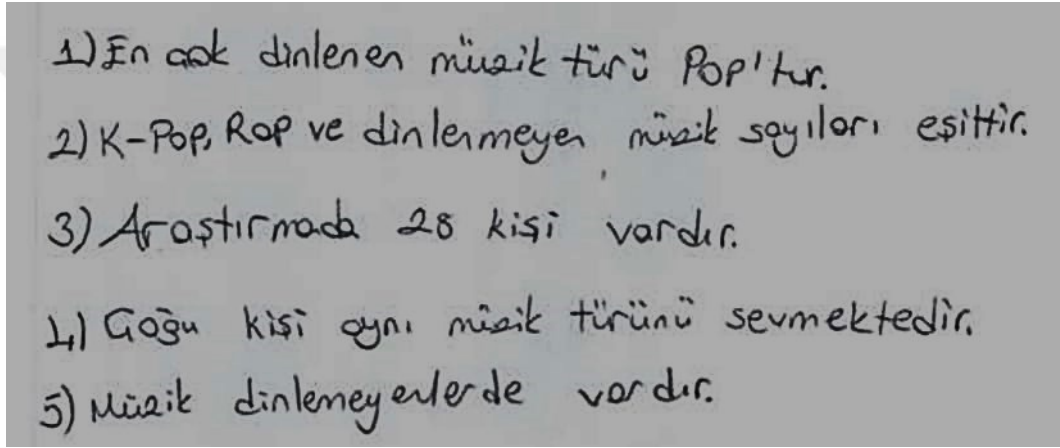 1) En çok dinlenen müzik türü Pop'tur.
2) K-Pop, Rap ve dinlenmeyen müzik sayıları eşittir.
3) Araştırmada 28 kişi vardır.
4) Çoğu kişi aynı müzik türünü sevmektedir.
5) Müzik dinlemeyenlerde vardır.